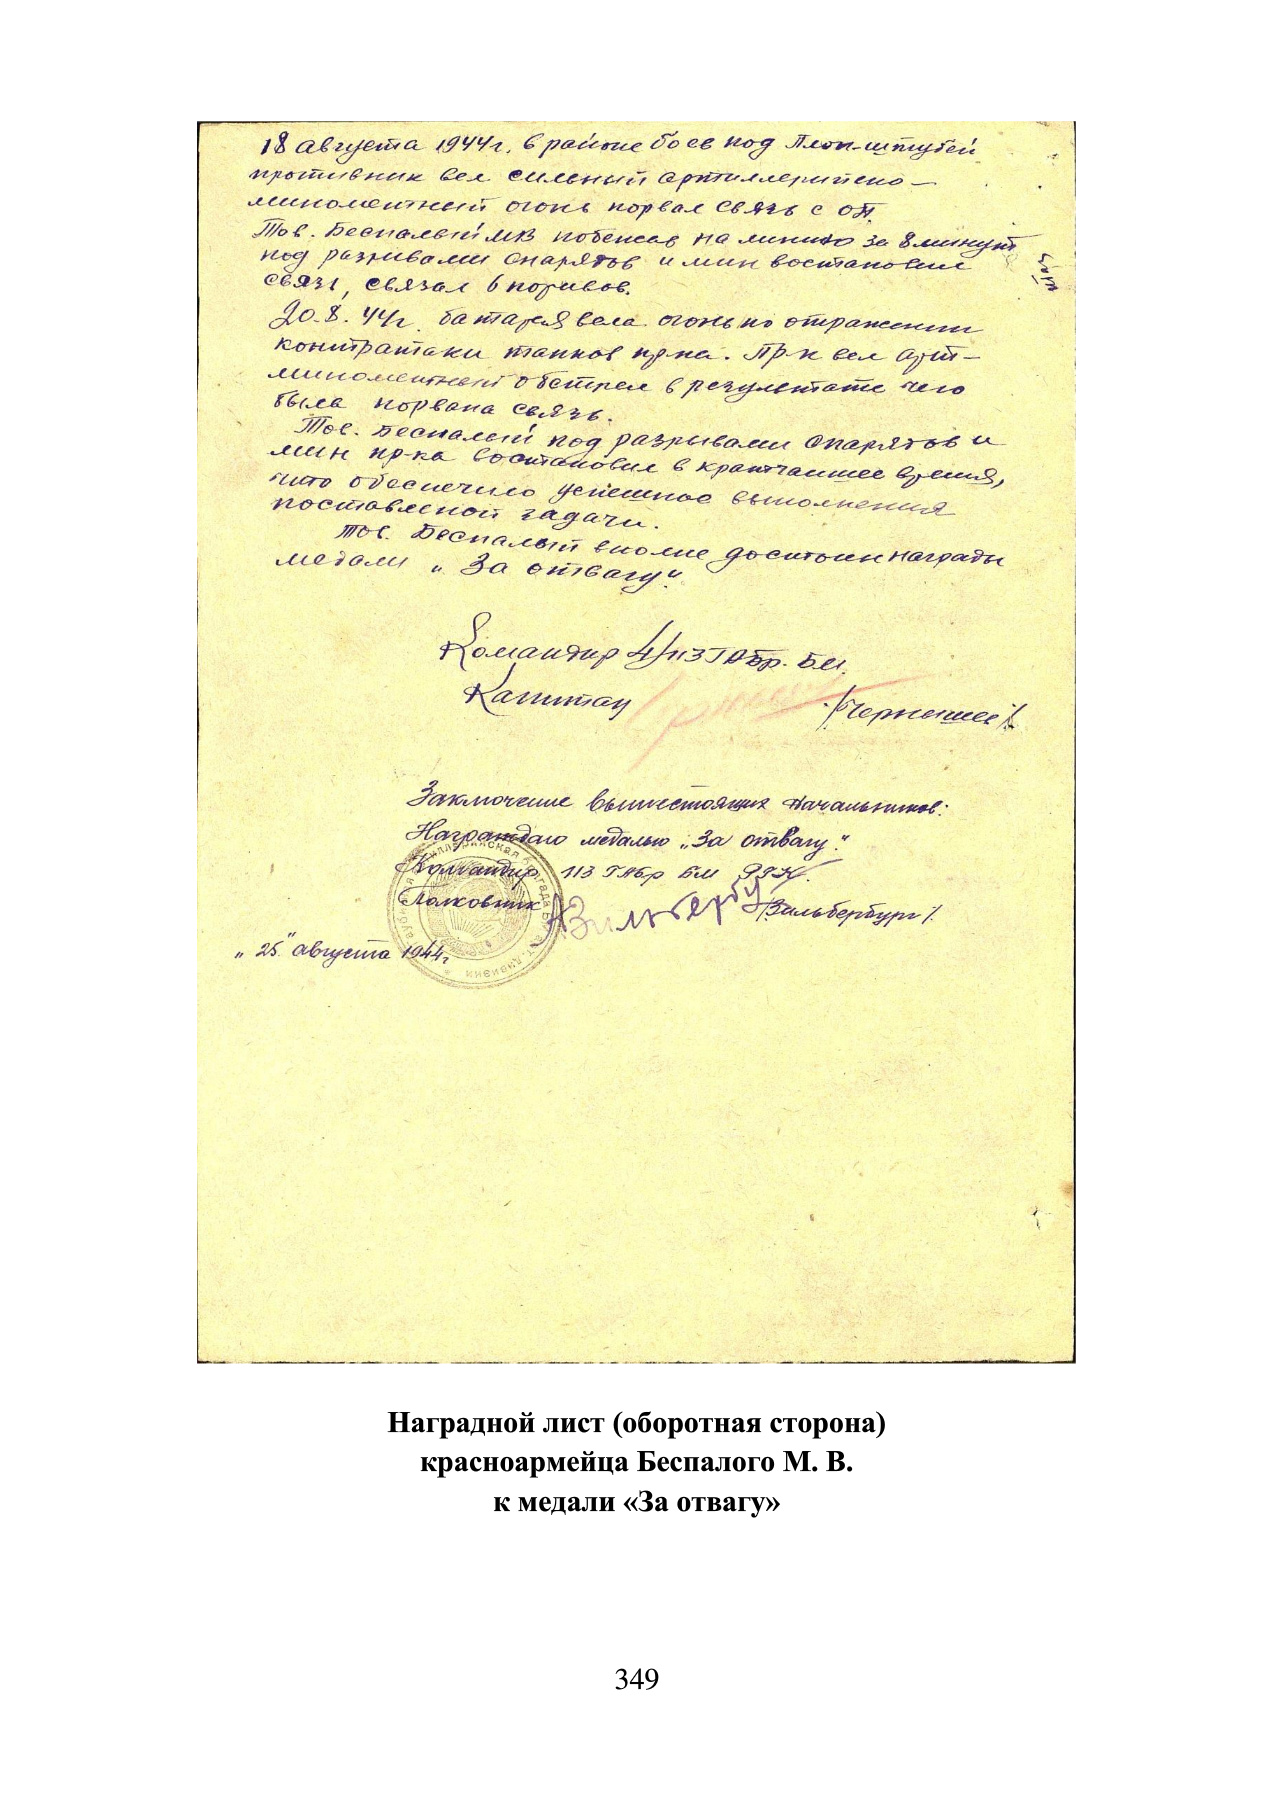 18 августа 1944г. в районе боев под Плоп-штубей
противник вел сильный артиллерийско-
минометный огонь порвал связь с ОП.
Тов. Беспалый МВ побежав на линию за 8 минут
под разрывами снарятов и мин востановил
связь, связал 6 поривов.
20.8.44г. батарея вела огонь по отражении
контратаки танков пр-ка. Пр-к вел арт-
минометный обстрел в результате чего
была порвана связь.
Тов. Беспалый под разрывами снарятов и
мин пр-ка востановил в кратчаишее время,
что обеспечило успешное выполнения
поставленой задачи.
Тов. Беспалый вполне достоин награды
медали „За отвагу".
Командир 4/113 ГАбр. БМ.
Капитан /Чернышев/
Заключение вышестоящих начальников:
Награждаю медалью „За отвагу."
Командир 113 ГАбр БМ РГК.
Полковник АЗильбербу /Зильбербург/.
„25" августа 1944г
Наградной лист (оборотная сторона)
красноармейца Беспалого М. В.
к медали «За отвагу»
349